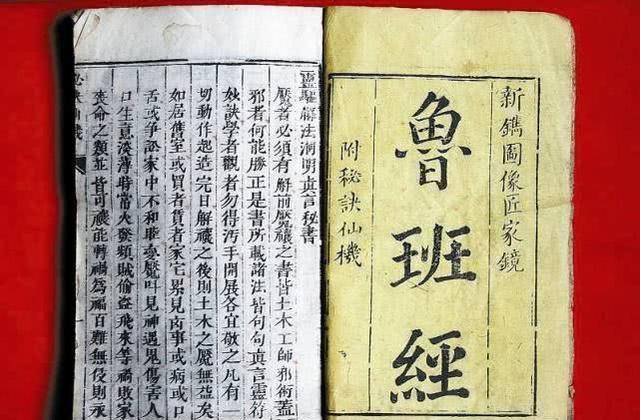 新鐫圖像匠家鏡
魯班經
附秘訣仙機
靈驅解法洞明真言秘書
魘者必須有解前魘禳之書皆土木工師邪術蓋
邪者何能勝正是書所載諸法皆句句真言靈符
妙訣學者觀者勿得污手開展各宜敬之凡有一
切動作起造完日解禳之後則土木之魘無益矣
如居舊室或買者賃者家宅累見凶事或病或口
舌或爭訟家中不和睡夢魘叶見神遇鬼傷害人
口生意淡薄時常火發頻賊偷盜飛來等禍敗家
喪命之類並皆可禳能轉禍爲福百難無侵則永
秘訣仙機